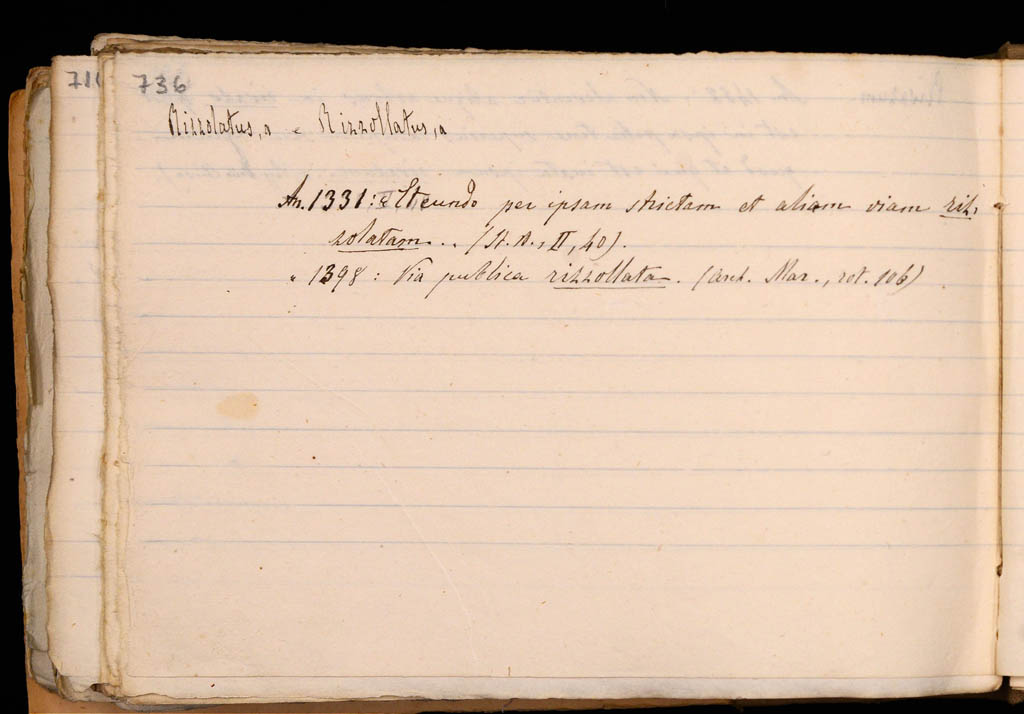 711
736
Rizzolatus, a e Rizzollatus, a
An. 1331: Et eundo per ipsam strictam et aliam viam riz-
zolatam.. (St. A., II, 40).
" 1398: Via publica rizzollata. (Arch. Mar., rot. 106)